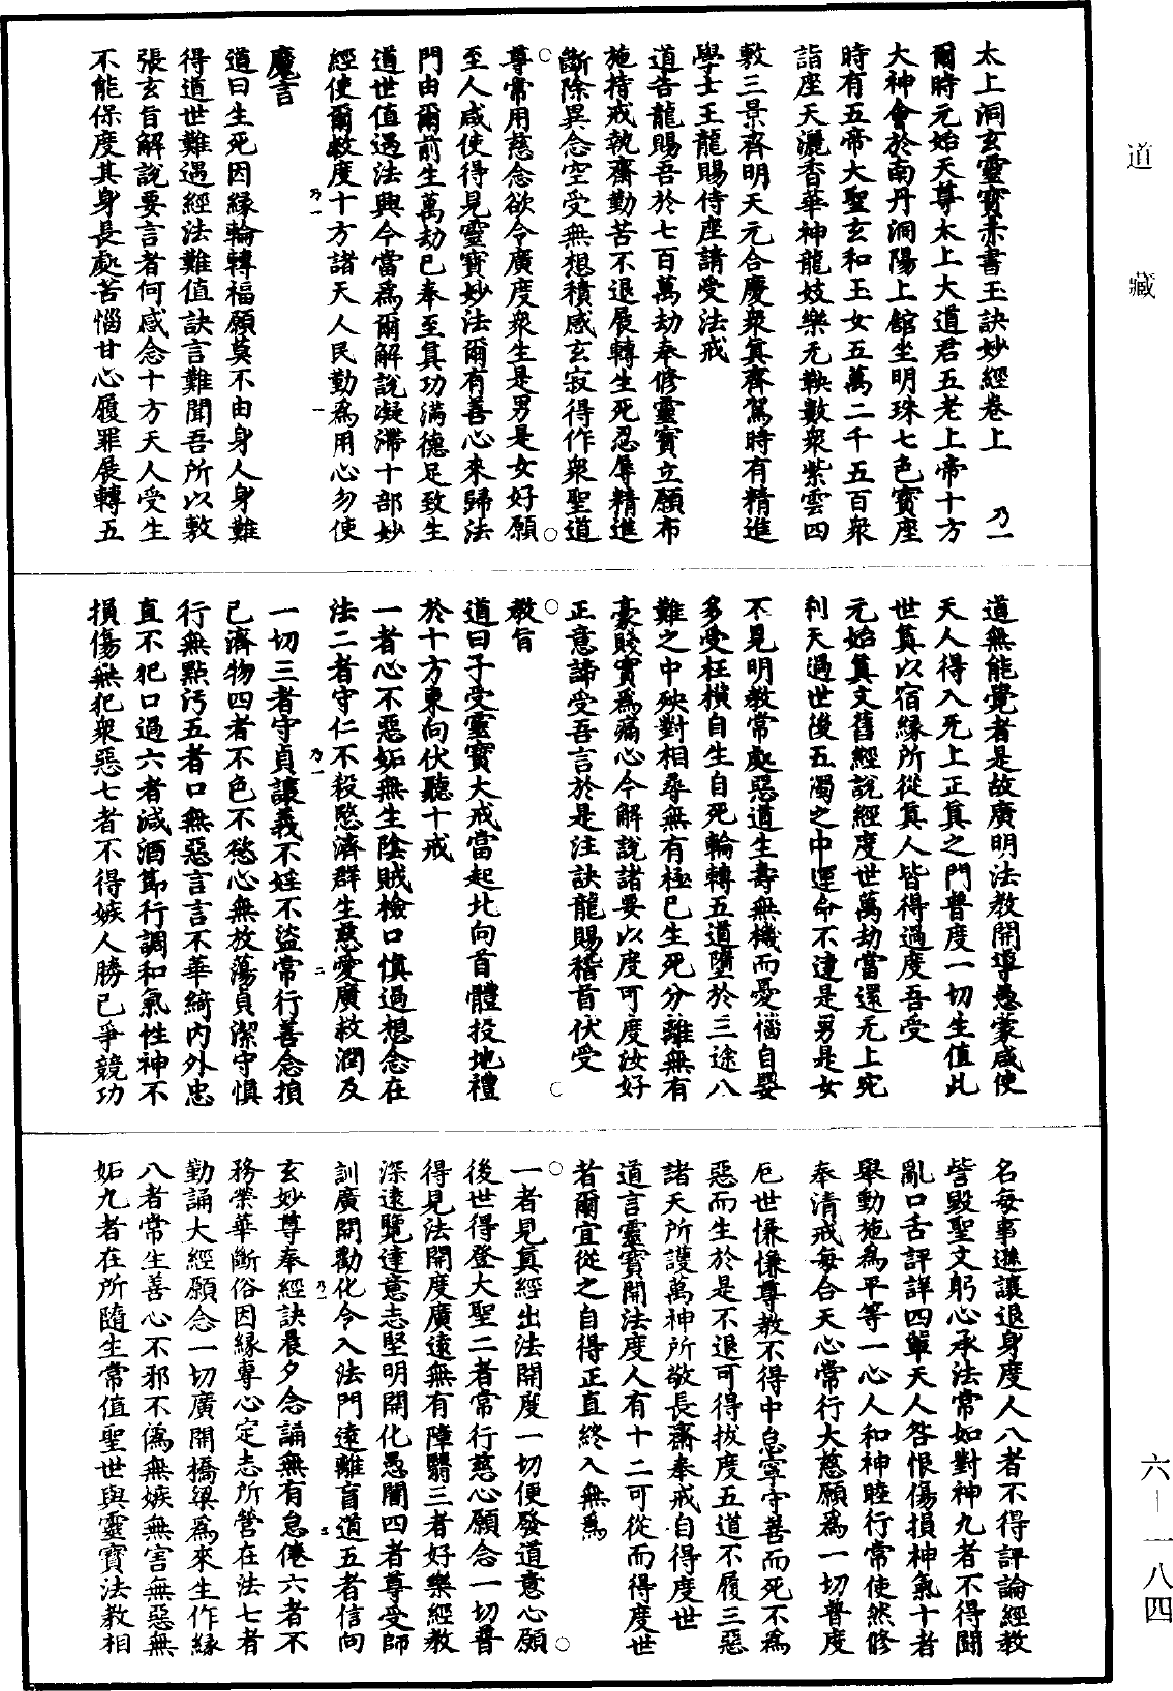 道藏
太上洞玄靈寶赤書玉訣妙經卷上 乃一
爾時元始天尊太上大道君五老上帝十方
大神會於南丹洞陽上館坐明珠七色寶座
時有五帝大聖玄和玉女五萬二千五百衆
詣座天灑香華神龍妓樂无鞅數衆紫雲四
敷三景齊明天元合慶衆真齊駕時有精進
學士王龍賜侍座請受法戒
道告龍賜吾於七百萬劫奉修靈寶立願布
施持戒執齋勤苦不退展轉生死忍辱精進
斷除異念空受無想積感玄寂得作衆聖道
尊常用慈念欲令廣度衆生是男是女好願
至人咸使得見靈寶妙法爾有善心來歸法
門由爾前生萬劫已奉至真功滿德足致生
道世值遇法興今當爲爾解說凝滯十部妙
經使爾救度十方諸天人民勤爲用心勿使
魔言
道曰生死因緣輪轉福願莫不由身人身難
得道世難遇經法難值訣言難聞吾所以敷
張玄旨解說要言者何感念十方天人受生
不能保度其身長處苦惱甘心履罪展轉五
道無能覺者是故廣明法教開導愚蒙咸使
天人得入无上正真之門普度一切生值此
世真以宿緣所從真人皆得過度吾受
元始真文舊經說經度世萬劫當還无上宛
利天過世後五濁之中運命不達是男是女
不見明教常處惡道生壽無機而憂惱自嬰
多受枉橫自生自死輪轉五道墮於三途八
難之中殃對相尋無有極已生死分離無有
豪賤實爲痛心今解說諸要以度可度汝好
正意諦受吾言於是注訣龍賜稽首伏受
教旨
道曰子受靈寶大戒當起北向首體投地禮
於十方東向伏聽十戒
一者心不惡妬無生陰賊檢口愼過想念在
法二者守仁不殺愍濟群生慈愛廣救潤及
一切三者守貞讓義不婬不盜常行善念損
己濟物四者不色不慾心無放蕩貞潔守愼
行無點污五者口無惡言言不華綺內外忠
直不犯口過六者減酒節行調和氣性神不
損傷無犯衆惡七者不得嫉人勝己爭競功
名每事遜讓退身度人八者不得評論經教
訾毀聖文躬心承法常如對神九者不得鬪
亂口舌評詳四輩天人咎恨傷損神氣十者
舉動施爲平等一心人和神睦行常使然修
奉清戒每合天心常行大慈願爲一切普度
厄世慊慊尊教不得中怠寧守善而死不爲
惡而生於是不退可得拔度五道不履三惡
諸天所護萬神所敬長齋奉戒自得度世
道言靈寶開法度人有十二可從而得度世
者爾宜從之自得正直終入無爲
一者見真經出法開度一切便發道意心願
後世得登大聖二者常行慈心願念一切普
得見法開度廣遠無有障翳三者好樂經教
深遠覽達意志堅明開化愚闇四者尊受師
訓廣開勸化令入法門遠離盲道五者信向
玄妙尊奉經訣晨夕念誦無有怠倦六者不
務榮華斷俗因緣專心定志所營在法七者
勤誦大經願念一切廣開橋梁爲來生作緣
八者常生善心不邪不僞無嫉無害無惡無
妬九者在所隨生常值聖世與靈寶法教相
六—一八四